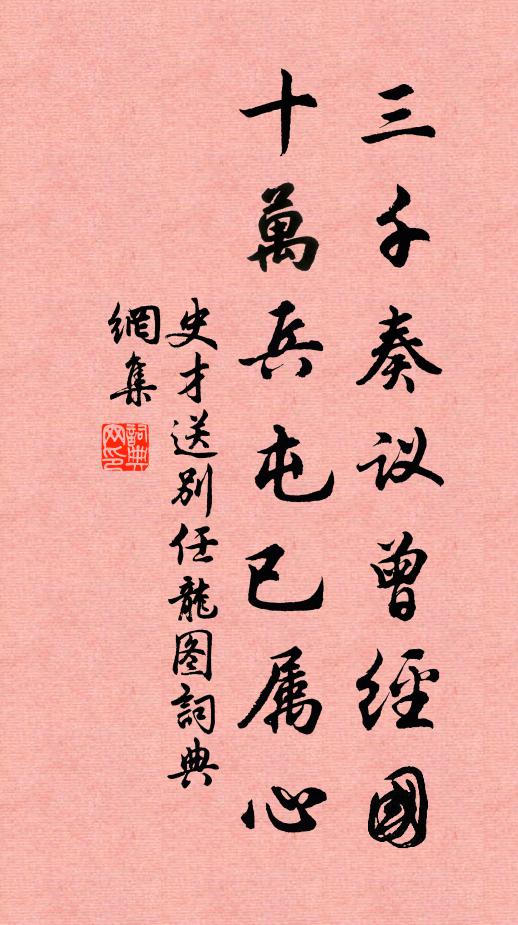 三千奏议曾經國
十萬兵屯已属心
史才送别任龍图詞典
網集
詞典
网印